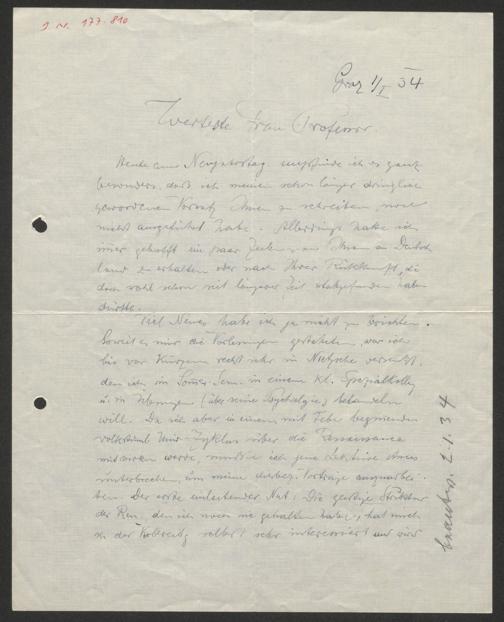 J. Nr. 177.810
Graz 1/I 34
Werteste Frau Professor
Heute am Neujahrstag empfinde ich es ganz
besonders, daß ich meinen schon länger dringlich
gewordenen Vorsatz Ihnen zu schreiben noch
nicht ausgeführt habe. Allerdings habe ich
immer gehofft ein paar Zeilen von Ihnen in Deutsch
land zu erhalten oder nach Ihrer Rückkunft, die
doch wohl schon seit längerer Zeit stattgefunden haben
dürfte.
Viel Neues habe ich ja nicht zu berichten.
Soweit es mir die Vorlesungen gestatteten, war ich
bis vor Kurzem recht sehr in Nietzsche versenkt,
den ich im Somer-Sem. in einem kl. Spezialkolleg
u. in Übungen (über seine Psychologie) behandeln
will. Da ich aber in einem mit Febr. beginnenden
volkstüml. Univ-Zyklus über die Renaissance
mitwirken werde, mußte ich jene Lektüre etwas
unterbrechen, um meine Vorträge auszuarbei-
ten. Der erste einleitender Nat.: Die geistige Struktur
der Ren., den ich noch nie gehalten habe, hat mich
in der selbst sehr interessiert und wird
beantw. 2.1.34